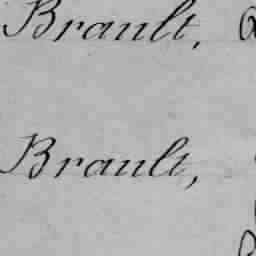 Brault,
Brault,